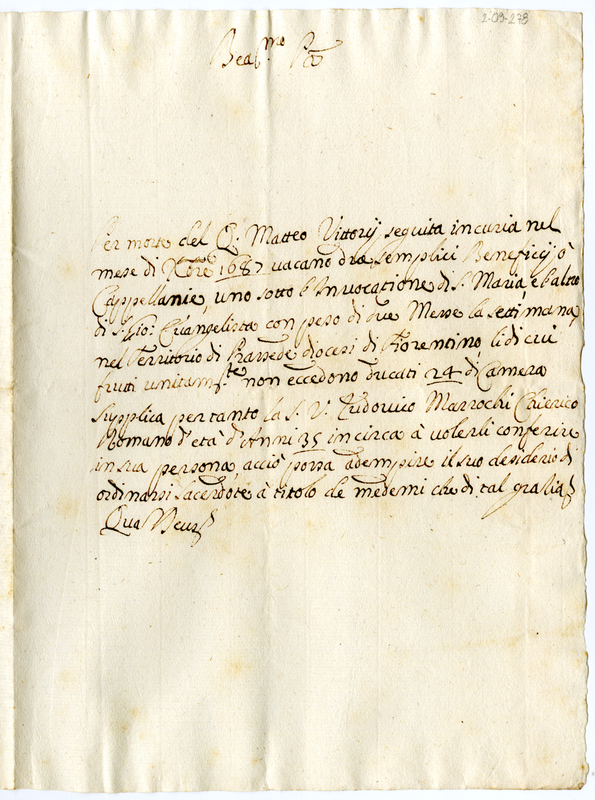 2-09-278
Bea.mo P.re
Per morte del Q. Matteo Vittorij seguita in curia nel
mese di 1687 vacano due semplici Beneficij ò
Cappellanie, uno sotto l'Invocatione di S. Maria, e l'altro
di S. Gio: Evangelista con peso di due Messe la settimana,
nel Territorio di Prassede diocesi di Fiorentino, li di cui
frutti unitam.te non eccedono ducati 24 di Camera
Supplica pertanto la S. V. Ludovico Marrochi Chierico
Romano d'età d'Anni 35 in circa à volerli conferire
in sua persona, acciò possa adempire il suo desiderio di
ordinarsi sacerdote à titolo de medemi che di tal gratia
Qua Deus